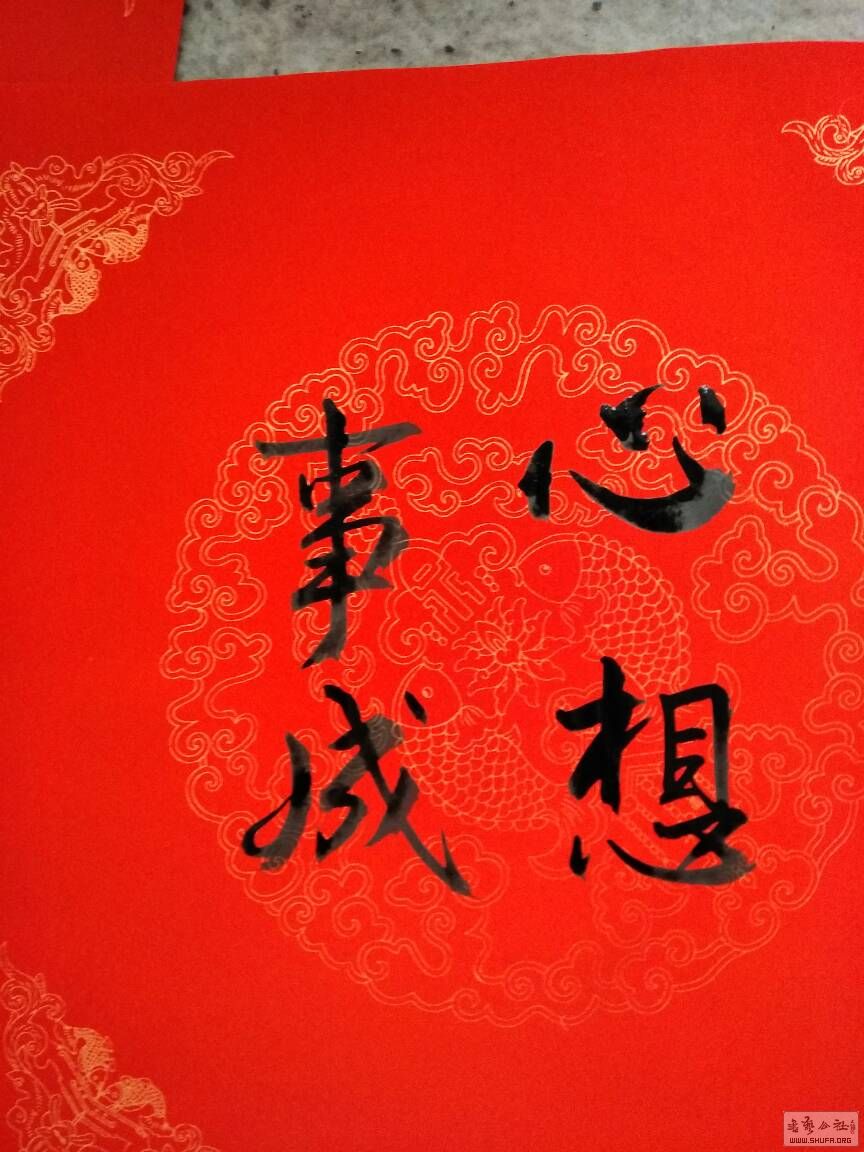 心想
事成
书艺公社
WWW.SHUFA.ORG